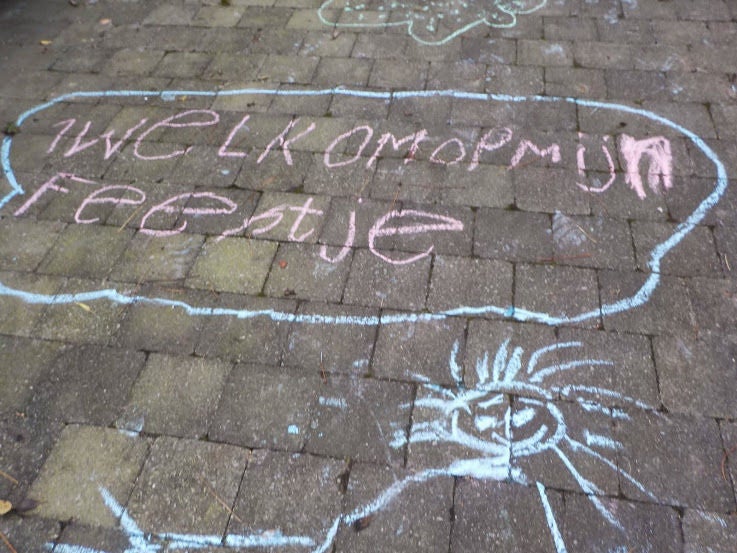 WELKOMOPMIJN
FEEstje